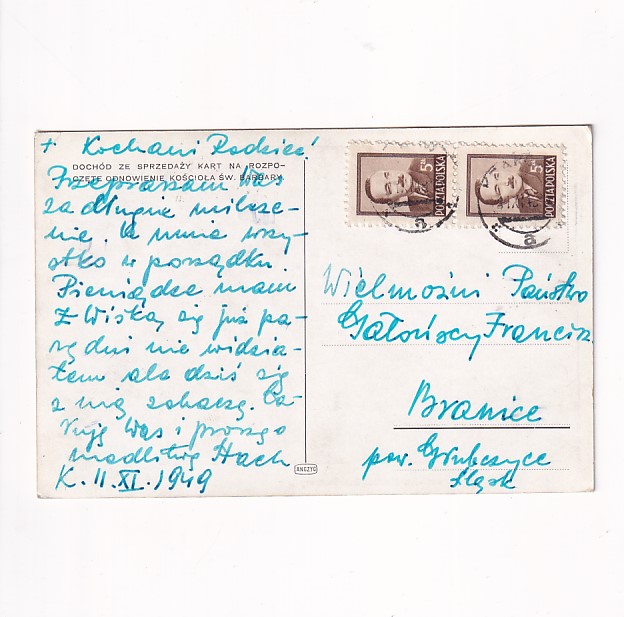 + Kochani Rodzice
DOCHÓD ZE SPRZEDAŻY KART NA ROZPO-
CZĘTE ODNOWIENIE KOŚCIOŁA ŚW. BARBARY.
Przepraszam Was
za długie milcze-
nie. U mnie wszy-
stko w porządku.
Pieniądze mam
Z Wiską się już pa-
rę dni nie widzia-
łem ale dziś się
z nią zobaczę. Ca-
łuję Was i proszę o
modlitwę
K. 11.XI.1949
5 ZŁ
POCZTA POLSKA
5 ZŁ
POCZTA POLSKA
a
a
Wielmożni Państwo
Gałońscy Francisz.
Branice
pow. Głubczyce
Śląsk
ANCZYC